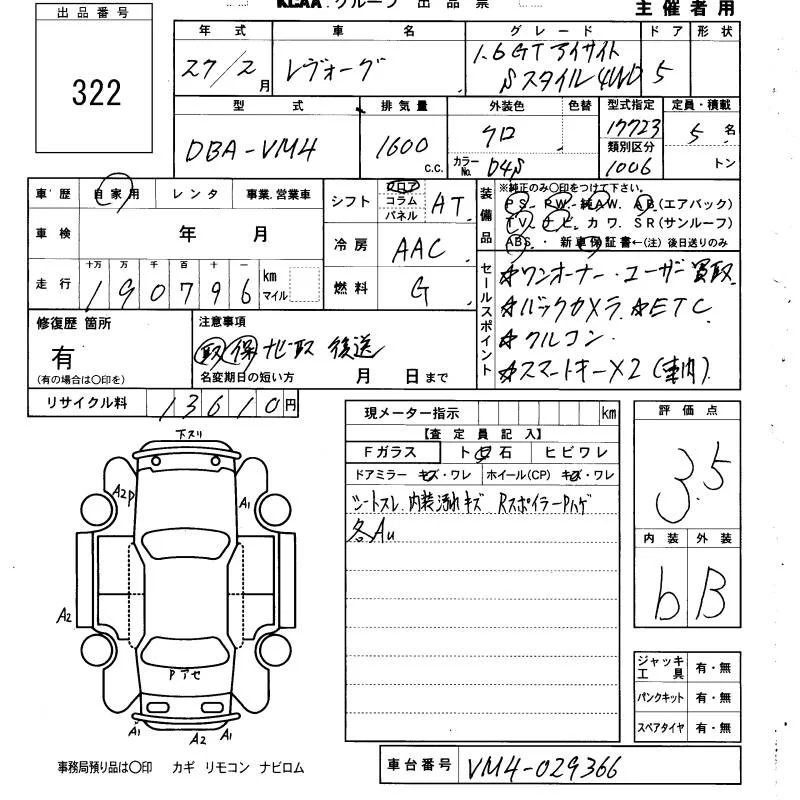 KCAA.グループ 出品票
主催者用
出品番号
322
年式 車名 グレード ドア 形状
27/2月 レヴォーグ 1.6GTアイサイト Sスタイル4WD 5
型式 排気量 外装色 色替 型式指定 定員・積載
DBA-VM4 1600 c.c. クロ 17723 5名
カラーNo. D4S 類別区分 1006 トン
車歴 自家用 レンタ 事業.営業車
車検 年 月
走行 十万 万 千 百 十 一 km マイル
190796
シフト フロア コラム パネル AT
冷房 AAC
燃料 G
装備品
※純正のみ〇印をつけて下さい。
PS. PW. 純AW. AB(エアバック)
TV. ナビ. カワ. SR(サンルーフ)
ABS. ・ 新車保証書←(注)後日送りのみ
セールスポイント
☆ワンオーナー・ユーザー買取
☆バックカメラ ☆ETC
☆クルコン
☆スマートキー×2(車内)
修復歴 箇所
有
(有の場合は〇印を)
注意事項
取 保 ナビ取 後送
名変期日の短い方 月 日まで
リサイクル料 13610円
現メーター指示 km
【査定員記入】
Fガラス ト 石 ヒビワレ
ドアミラー キズ・ワレ ホイール(CP) キズ・ワレ
シートスレ. 内装汚れキズ RスポイラーPハゲ
各AU
評価点
3.5
内装 外装
b B
ジャッキ 工具 有・無
パンクキット 有・無
スペアタイヤ 有・無
下スリ
A2P
A1
A2
Pアセ
A1 A2 A1
事務局預り品は〇印 カギ リモコン ナビロム
車台番号 VM4-029366